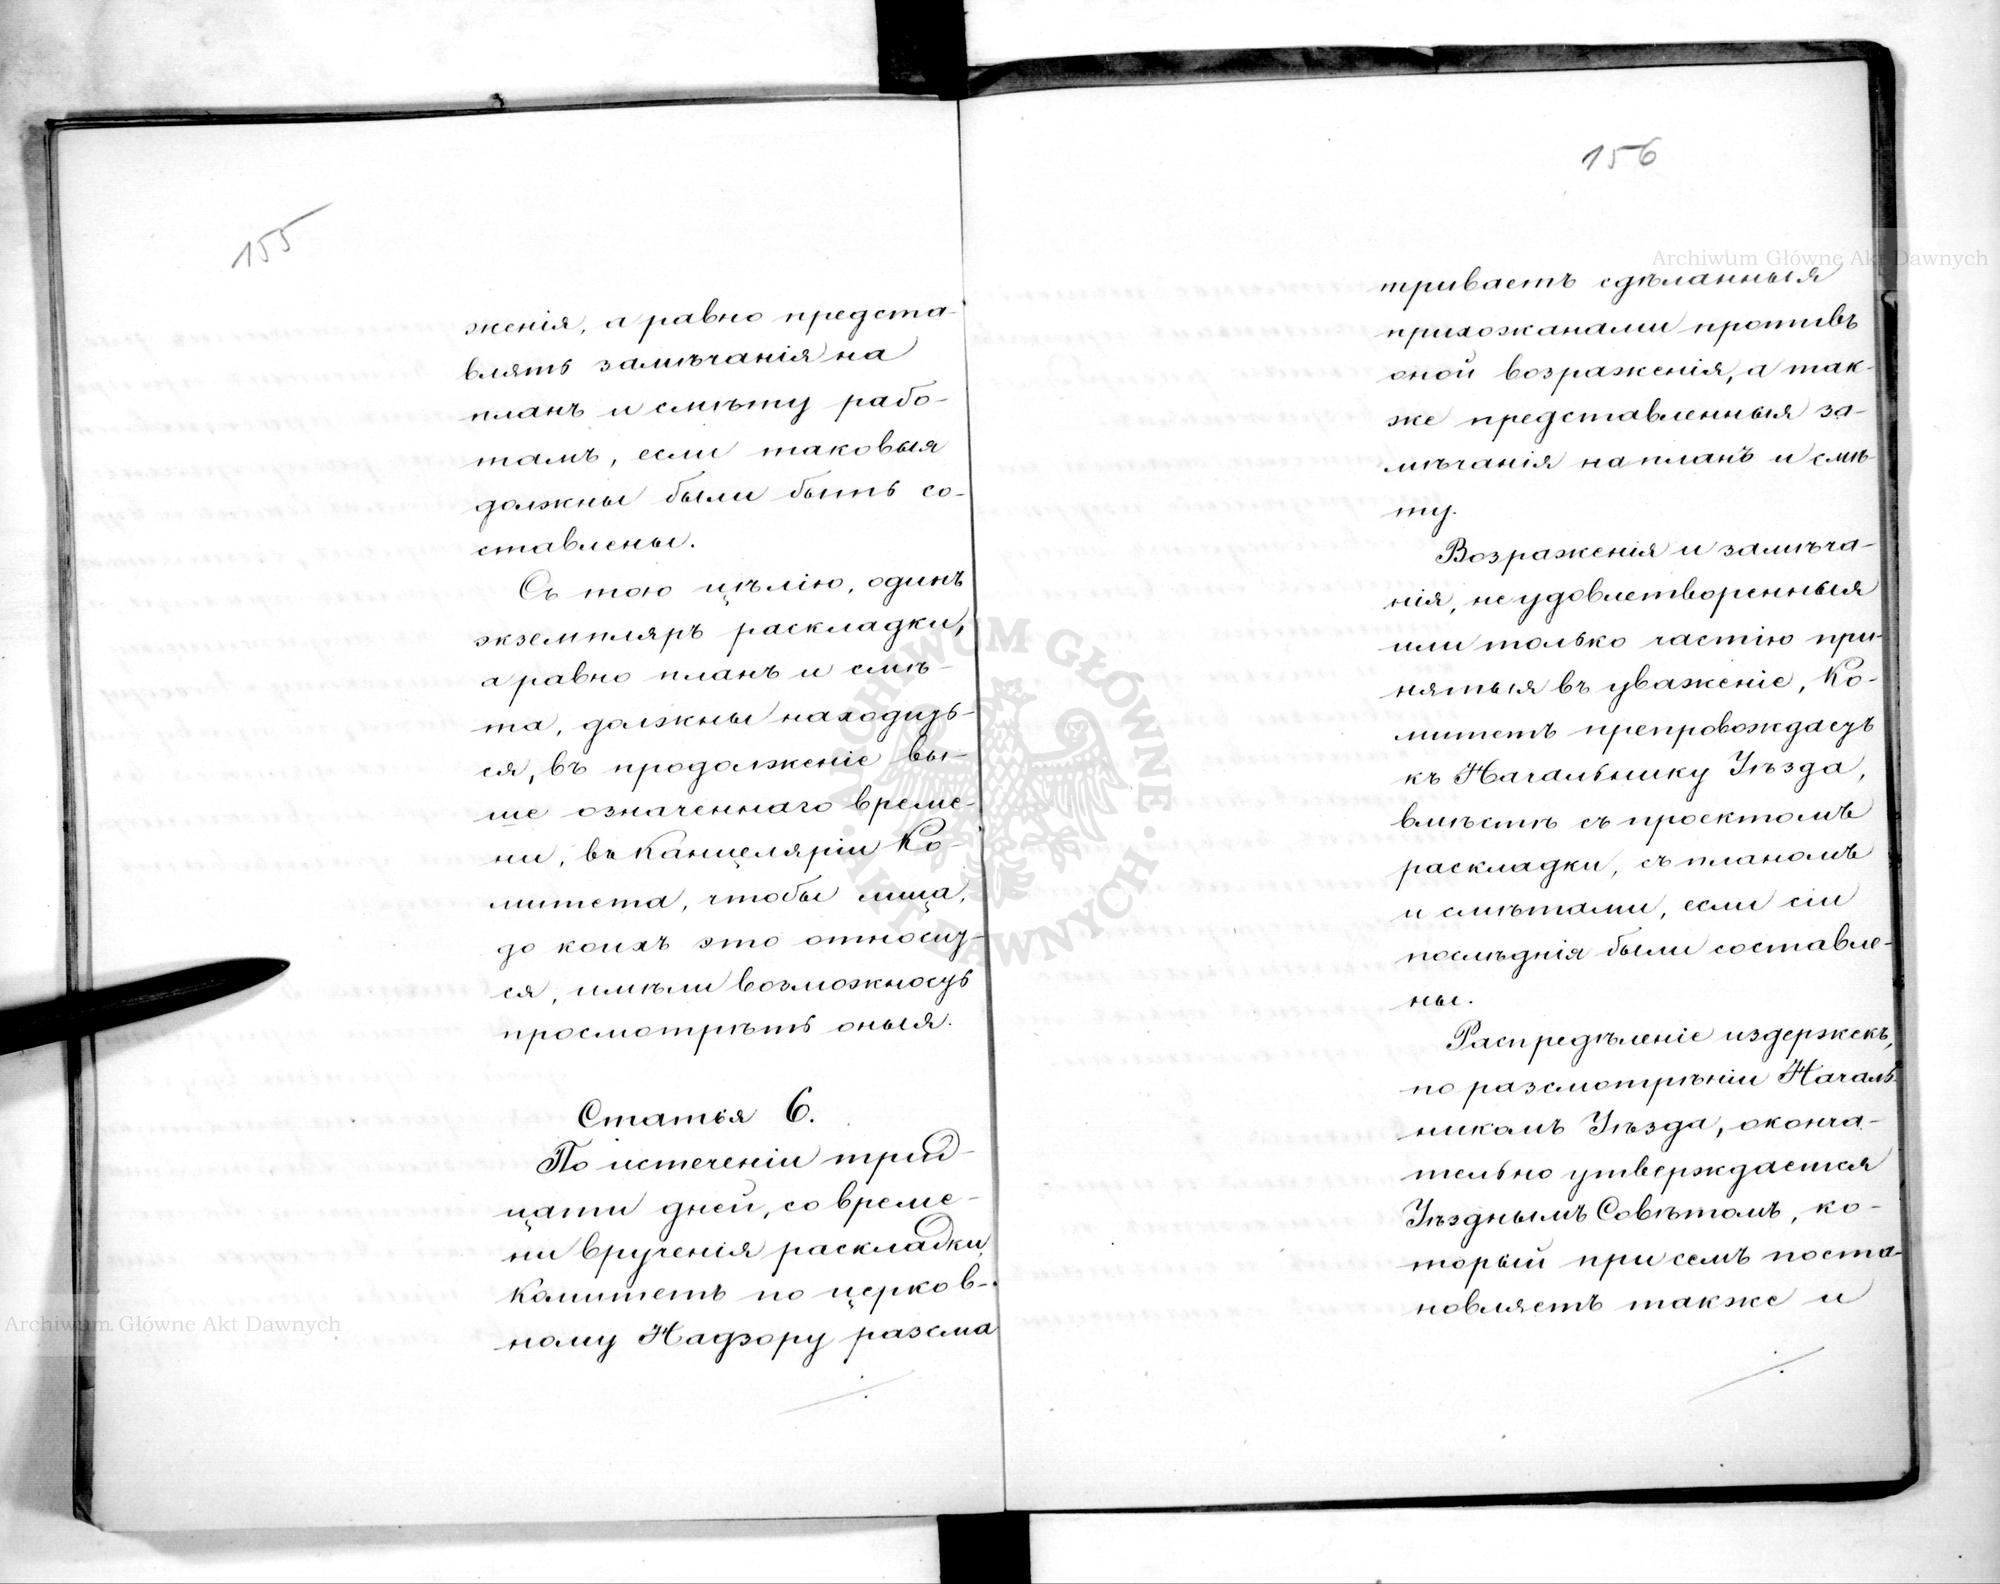 155
женія, а равно предста-
влять замѣчанія на
планъ и смѣту рабо-
тамъ, если таковыя
должны были быть со-
ставлены.
Съ тою цѣлію, одинъ
экземпляръ раскладки,
а равно планъ и смѣ-
та, должны находить-
ся, въ продолженіе вы-
ше означеннаго време-
ни, въ Канцеляріи Ко-
митета, чтобы лица,
до коихъ это относит-
ся, имѣли возможность
просмотрѣть оныя.
Статья 6.
По истеченіи трид-
цати дней, со време-
ни врученія раскладки,
Комитетъ по церков-
ному Надзору разсма
156
триваетъ сдѣланныя
прихожанами противъ
оной возраженія, а так-
же представленныя за-
мѣчанія на планъ и смѣ-
ту.
Возраженія и замѣча-
нія, неудовлетворенныя
или только частію при-
нятыя въ уваженіе, Ко-
митетъ препровождаетъ
къ Начальнику Уѣзда,
вмѣстѣ съ проектомъ
раскладки, съ планомъ
и смѣтами, если сіи
послѣднія были составле-
ны.
Распредѣленіе издержекъ,
по разсмотрѣніи Началь-
никомъ Уѣзда, оконча-
тельно утверждается
Уѣзднымъ Совѣтомъ, ко-
торый при семъ поста-
новляетъ также и
Archiwum Główne Akt Dawnych
Archiwum Główne Akt Dawnych
ARCHIWUM GŁÓWNE · AKT DAWNYCH ·